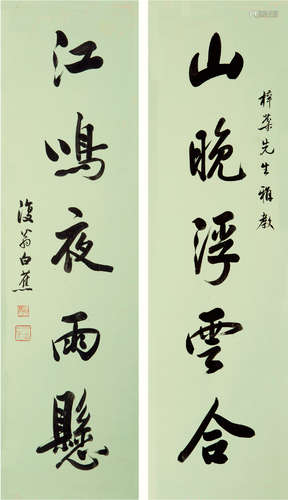 山晚浮雲合
梓業先生雅教
江鳴夜雨懸
復翁白蕉